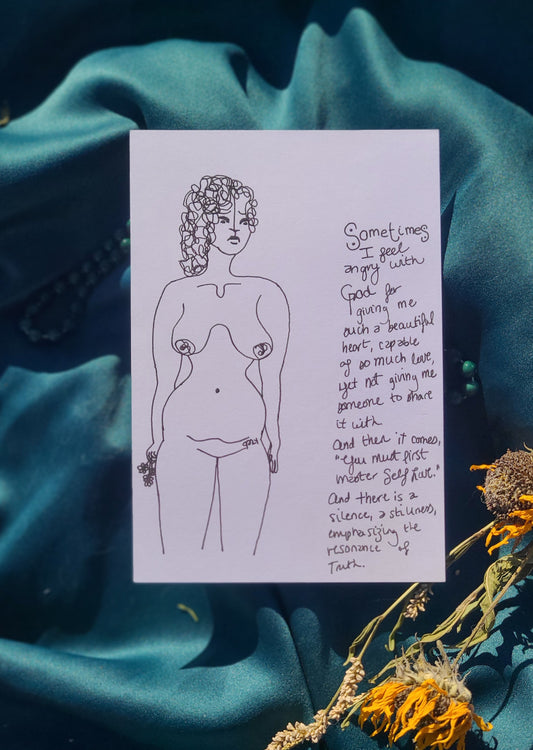 Sometimes
I feel
angry with
God for
giving me
such a beautiful
heart, capable
of so much love,
yet not giving me
someone to share
it with
And then it comes,
"You must first
master Self Love."
And there is a
silence, a stillness,
emphasizing the
resonance of
Truth.